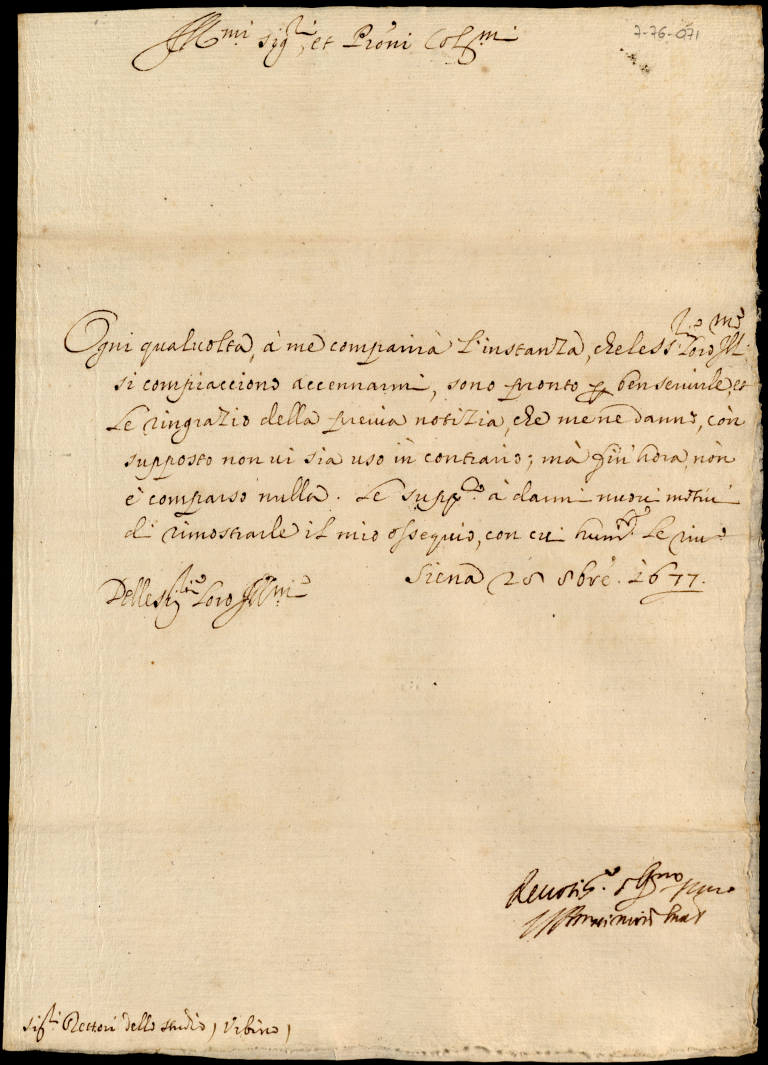 7-76-071
Ill.mi Sig.ri et Pròni Col.mi
Ogni qualuolta, à me comparirà l'instanza, che le SS.rie Loro Ill.me
si compiacciono accennarmi, sono pronto p ben seruirle, et
Le ringrazio della preuia notizia, che me ne danno, còn
supposto non ui sia uso in contrario; mà fin'hora nòn
è comparso nulla. Le supp.co à darmi nuoui motiui
di rimostrarle il mio ossequio, con cui hum.te Le riu.o
Siena 28 8bre. 1677.
Delle Sig.rie Loro Ill.me
Deuotis.o
Sig.ri Rettori dello studio, Vrbino,